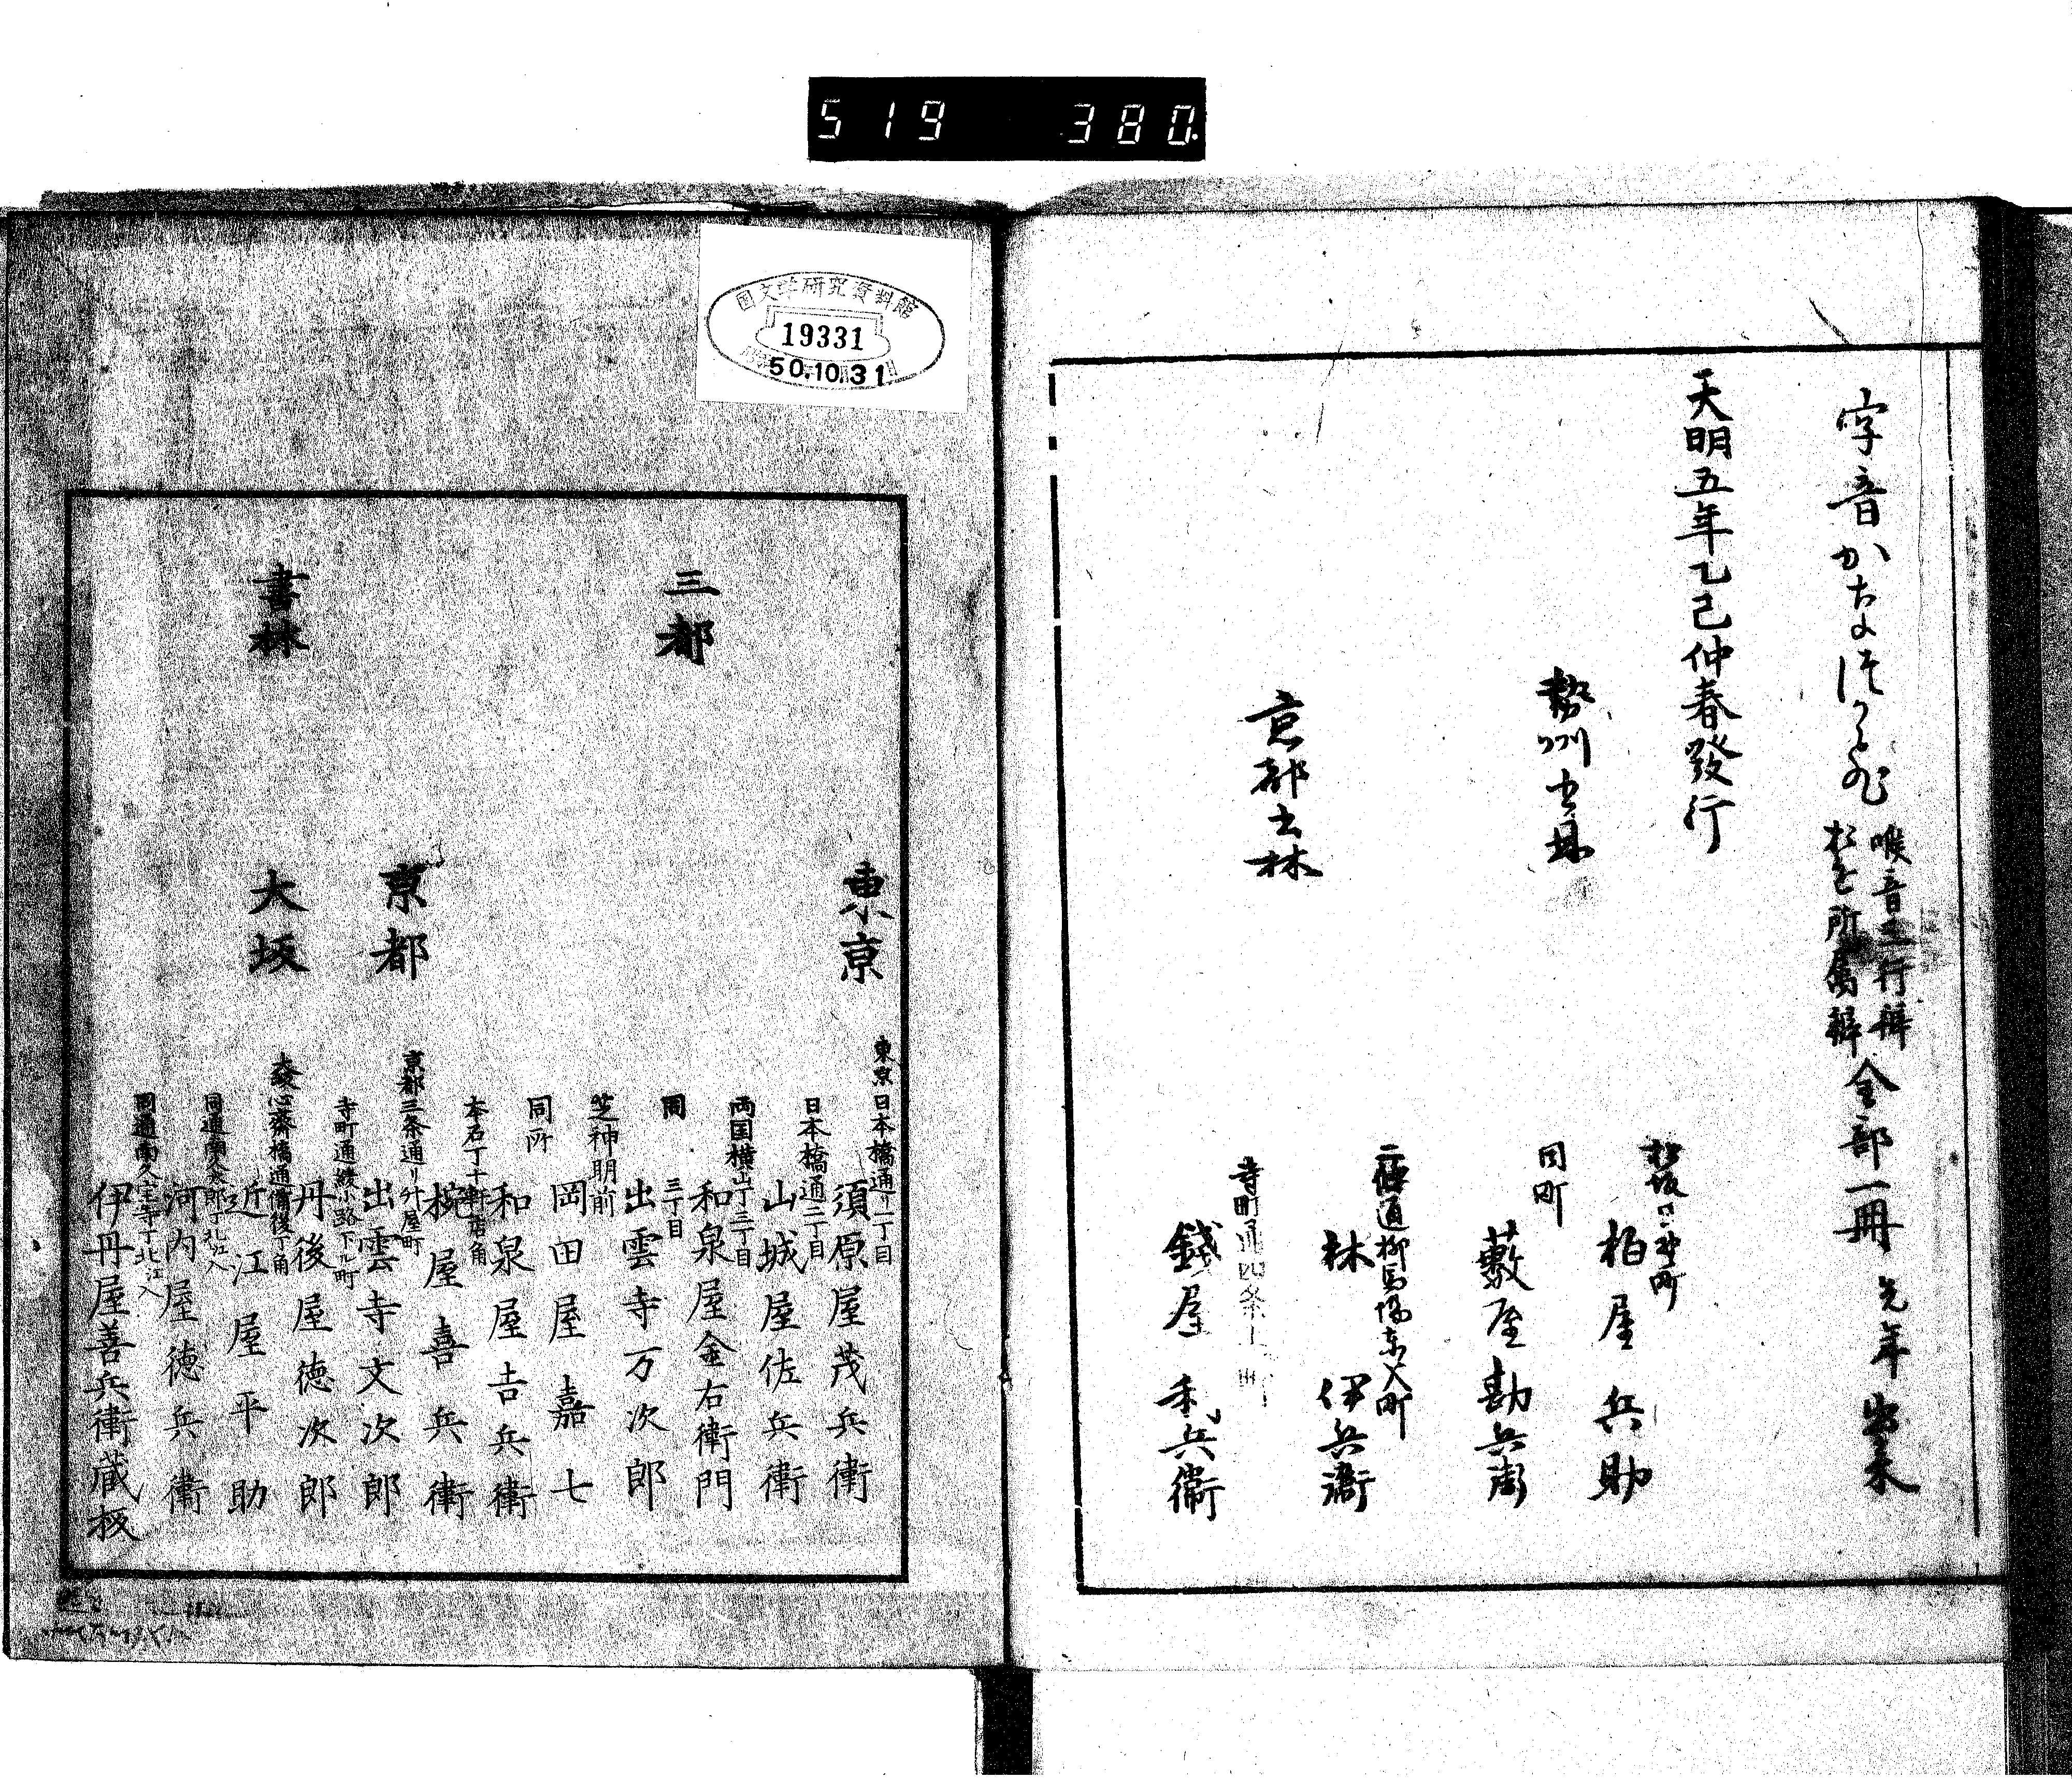 519 380.
字音かなづかひ 喉音三行辨 おを所属辨 全部一冊 先年出来
天明五年乙巳仲春發行
勢州書林
松坂日野町
柏屋兵助
同町
藪屋勘兵衛
京都書林
二條通柳馬場東入町
林伊兵衛
寺町通四条上
錢屋利兵衛
国文学研究資料館
19331
50.10.31
三都
書林
東京
東京日本橋通一丁目
須原屋茂兵衛
日本橋通二丁目
山城屋佐兵衛
両国横山丁三丁目
和泉屋金右衛門
同 三丁目
出雲寺万次郎
芝神明前
岡田屋嘉七
同所
和泉屋吉兵衛
本石丁十軒店角
椀屋喜兵衛
京都
京都三条通り升屋町
出雲寺文次郎
寺町通綾小路下ル町
丹後屋徳次郎
大坂
心斎橋通備後丁角
近江屋平助
同通南久太郎丁北江入
河内屋徳兵衛
同通南久宝寺丁北江入
伊丹屋善兵衛蔵板